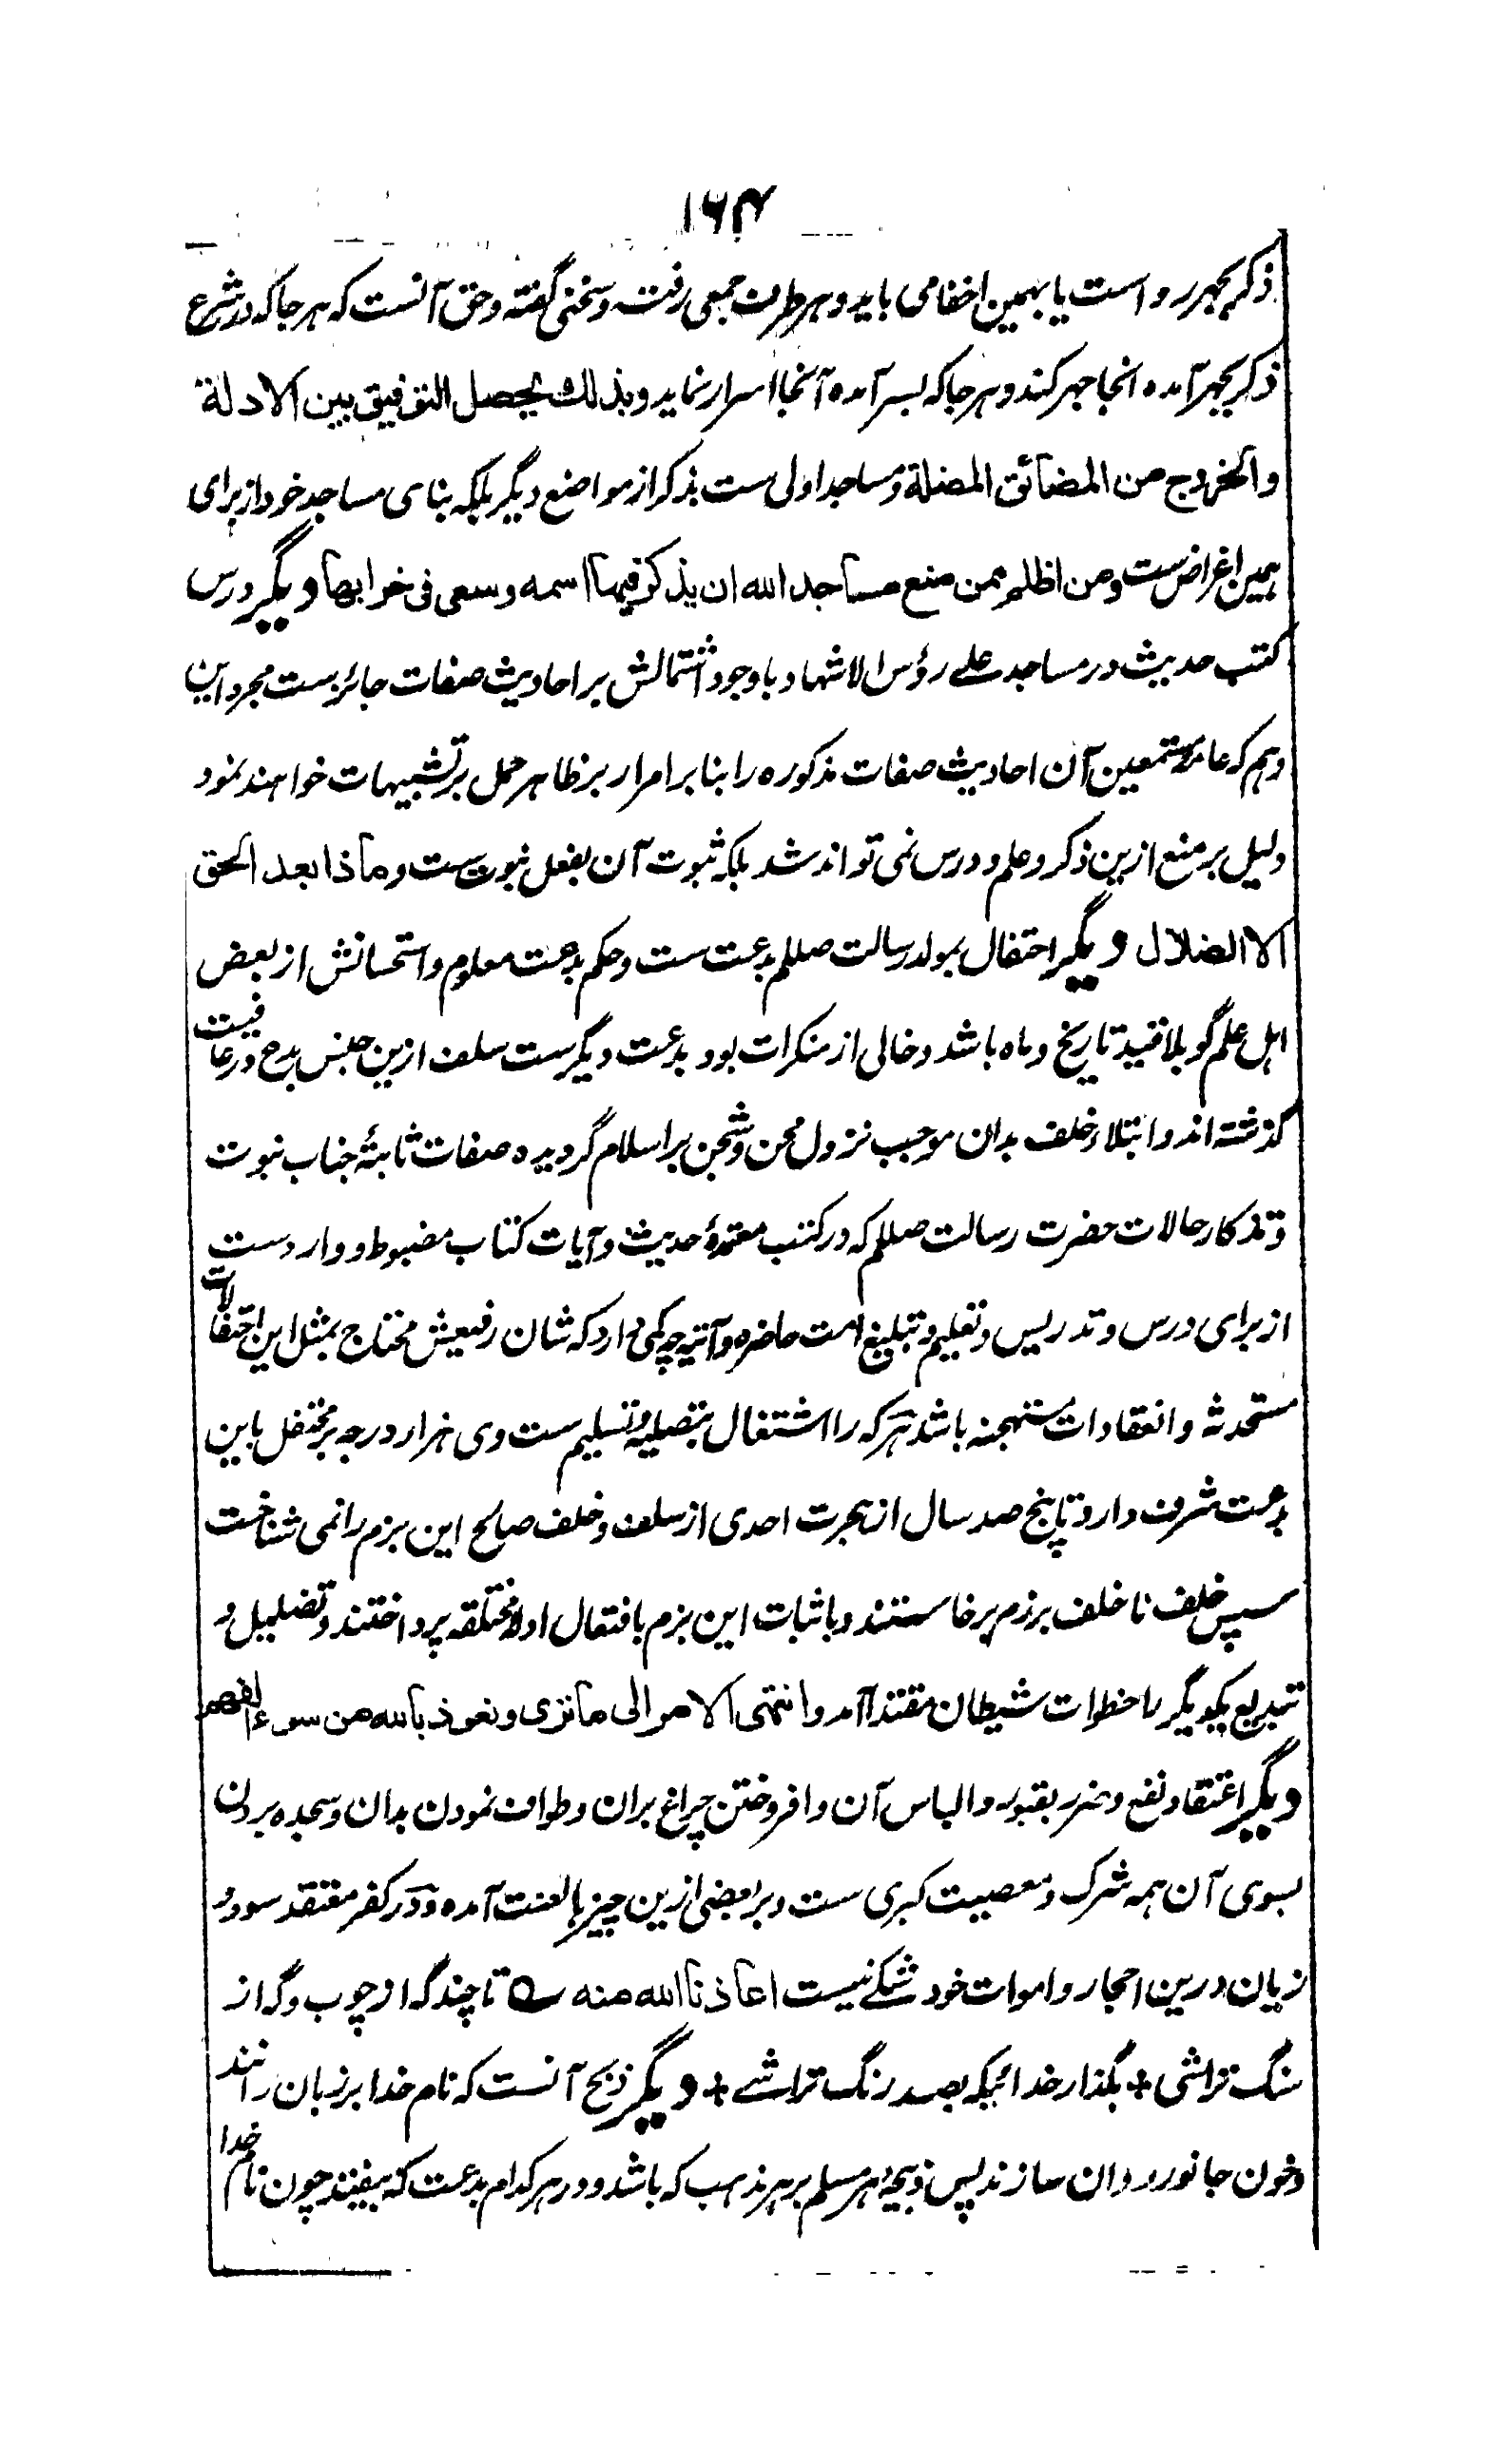 ۱۶۴
ذکر بجهر رواست یا بهمین اخفا می باید و بهر طرف جمعی رفته و سخنی گفته و حق آنست که هر جا که در شرع
ذکر بجهر آمده انجا جهر کنند و هر جا که بسر آمده آنجا اسرار نماید و بذلك يحصل التوفيق بين الادلة
والخروج من المضائق المضلة و مساجد اولی ست بذکر از مواضع دیگر بلکه بنای مساجد خود از برای
همین اغراض ست ومن اظلم ممن منع مساجد الله ان يذكر فيها اسمه وسعى فى خرابها دیگر درس
کتب حدیث در مساجد علے رؤس الاشهاد با وجود اشتمالش بر احادیث صفات جائز ست مجرد این
وهم که عامهٔ مستمعین آن احادیث صفات مذکوره را بنا بر امرار بر ظاهر حمل بر تشبیهات خواهند نمود
دلیل بر منع ازین ذکر و علم و درس نمی تواند شد بلکه ثبوت آن بفعل نبوت ست وماذا بعد الحق
الا الضلال دیگر احتفال بمولد رسالت صللم بدعت ست و حکم بدعت معلوم و استحسانش از بعض
اهل علم گو بلا قید تاریخ و ماه باشد و خالی از منکرات بود بدعت دیگرست سلف ازین جنس بدع در عافیت
گذشته اند و ابتلاء خلف بدان موجب نزول محن و شجن بر اسلام گردیده صفات ثابتهٔ جناب نبوت
و تذکار حالات حضرت رسالت صللم که در کتب معتمدهٔ حدیث و آیات کتاب مضبوط و وارد ست
از برای درس و تدریس و تعلیم و تبلیغ امت حاضره و آتیه چه کمی دارد که شان رفیعش محتاج بمثل این احتفالات
مستحدثه و انعقادات مستهجنه باشد هر که را اشتغال بتصلیه و تسلیم ست وی هزار درجه بر محتفل باین
بدعت شرف دارد تا پنج صد سال از هجرت احدی از سلف و خلف صالح این بزم را نمی شناخت
سپس خلف ناخلف بر زم برخاستند و باثبات این بزم بافتعال ادلهٔ مختلقه پرداختند و تضلیل و
تبدیع یکدیگر با خطرات شیطان مقتدا آمد وانتهى الامر الى ما ترى ونعوذ بالله من سوء الفهم
دیگر اعتقاد نفع و ضرر بقبور و الباس آن و افروختن چراغ بران و طواف نمودن بدان و سجده بردن
بسوی آن همه شرک و معصیت کبری ست و بر بعضی ازین چیزها لعنت آمده و در کفر معتقد سود و
زیان درین احجار و اموات خود شکے نیست اعاذنا الله منه ے تا چند گه از چوب و گه از
سنگ تراشی + بگذار خدائیکه بصد رنگ تراشے + دیگر ذبح آنست که نام خدا بر زبان رانند
و خون جانور روان سازند پس ذبیحهٔ هر مسلم بر هر مذهب که باشد و در هر کدام بدعت که بیفتد چون نام خدا